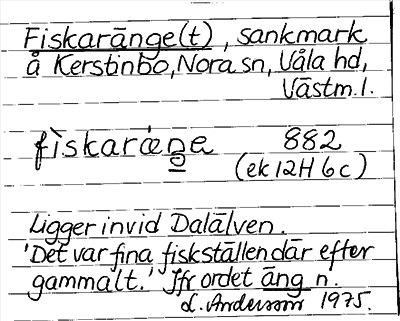 Fiskaränge(t), sankmark
å Kerstinbo, Nora sn, Våla hd,
Västm.l.
fìskaræ̀ŋe 882
(ek 12H 6c)
Ligger invid Dalälven.
'Det var fina fiskställen där efter
gammalt.' Jfr ordet äng n.
L. Andersson 1975.